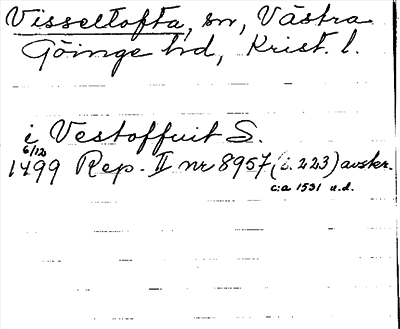 Visseltofta, sn, Västra
Göinge hd, Krist. l.
i Vestoffuit S.
6/12
1499 Rep. II nr 8957 (i. 223) avskr.
c:a 1531 u.d.